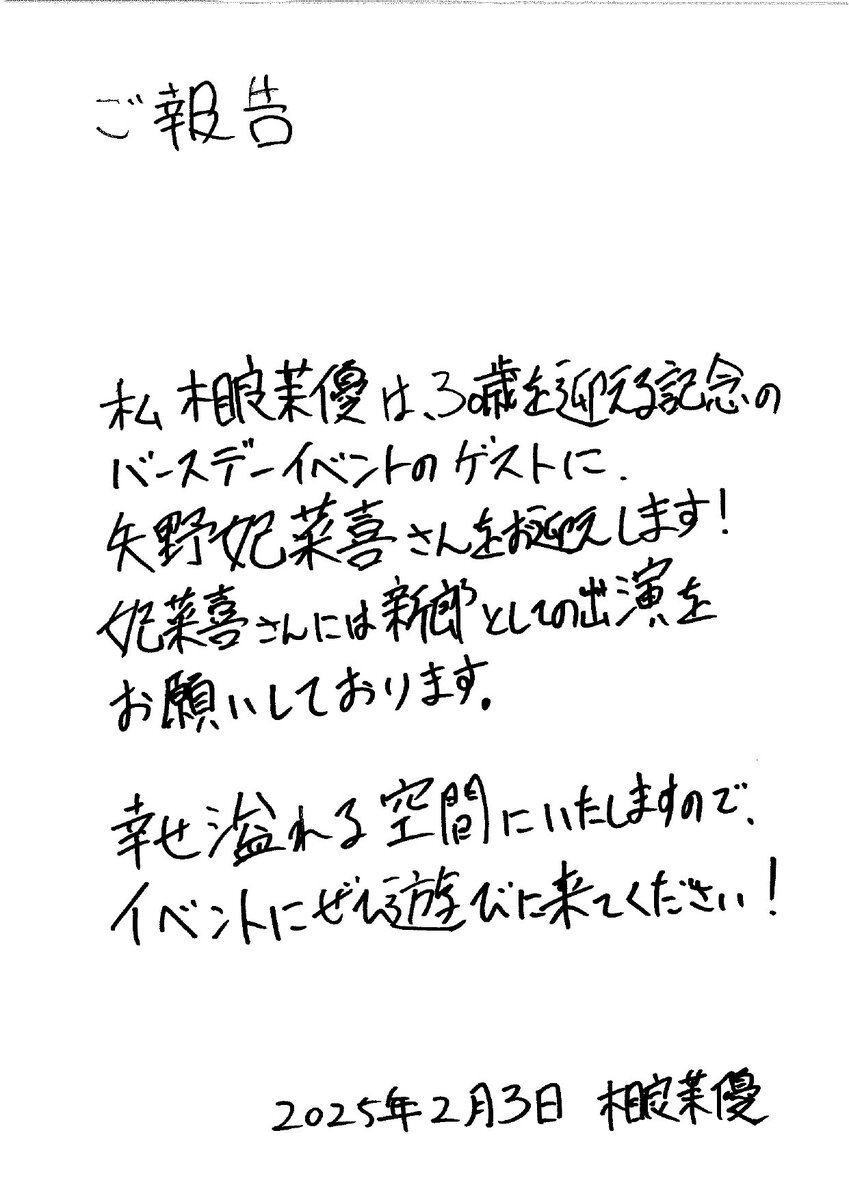 ご報告
私 相良茉優は、30歳を迎える記念の
バースデーイベントのゲストに、
矢野妃菜喜さんをお迎えします!
妃菜喜さんには新郎としての出演を
お願いしております。
幸せ溢れる空間にいたしますので、
イベントにぜひ遊びに来てください!
2025年2月3日 相良茉優